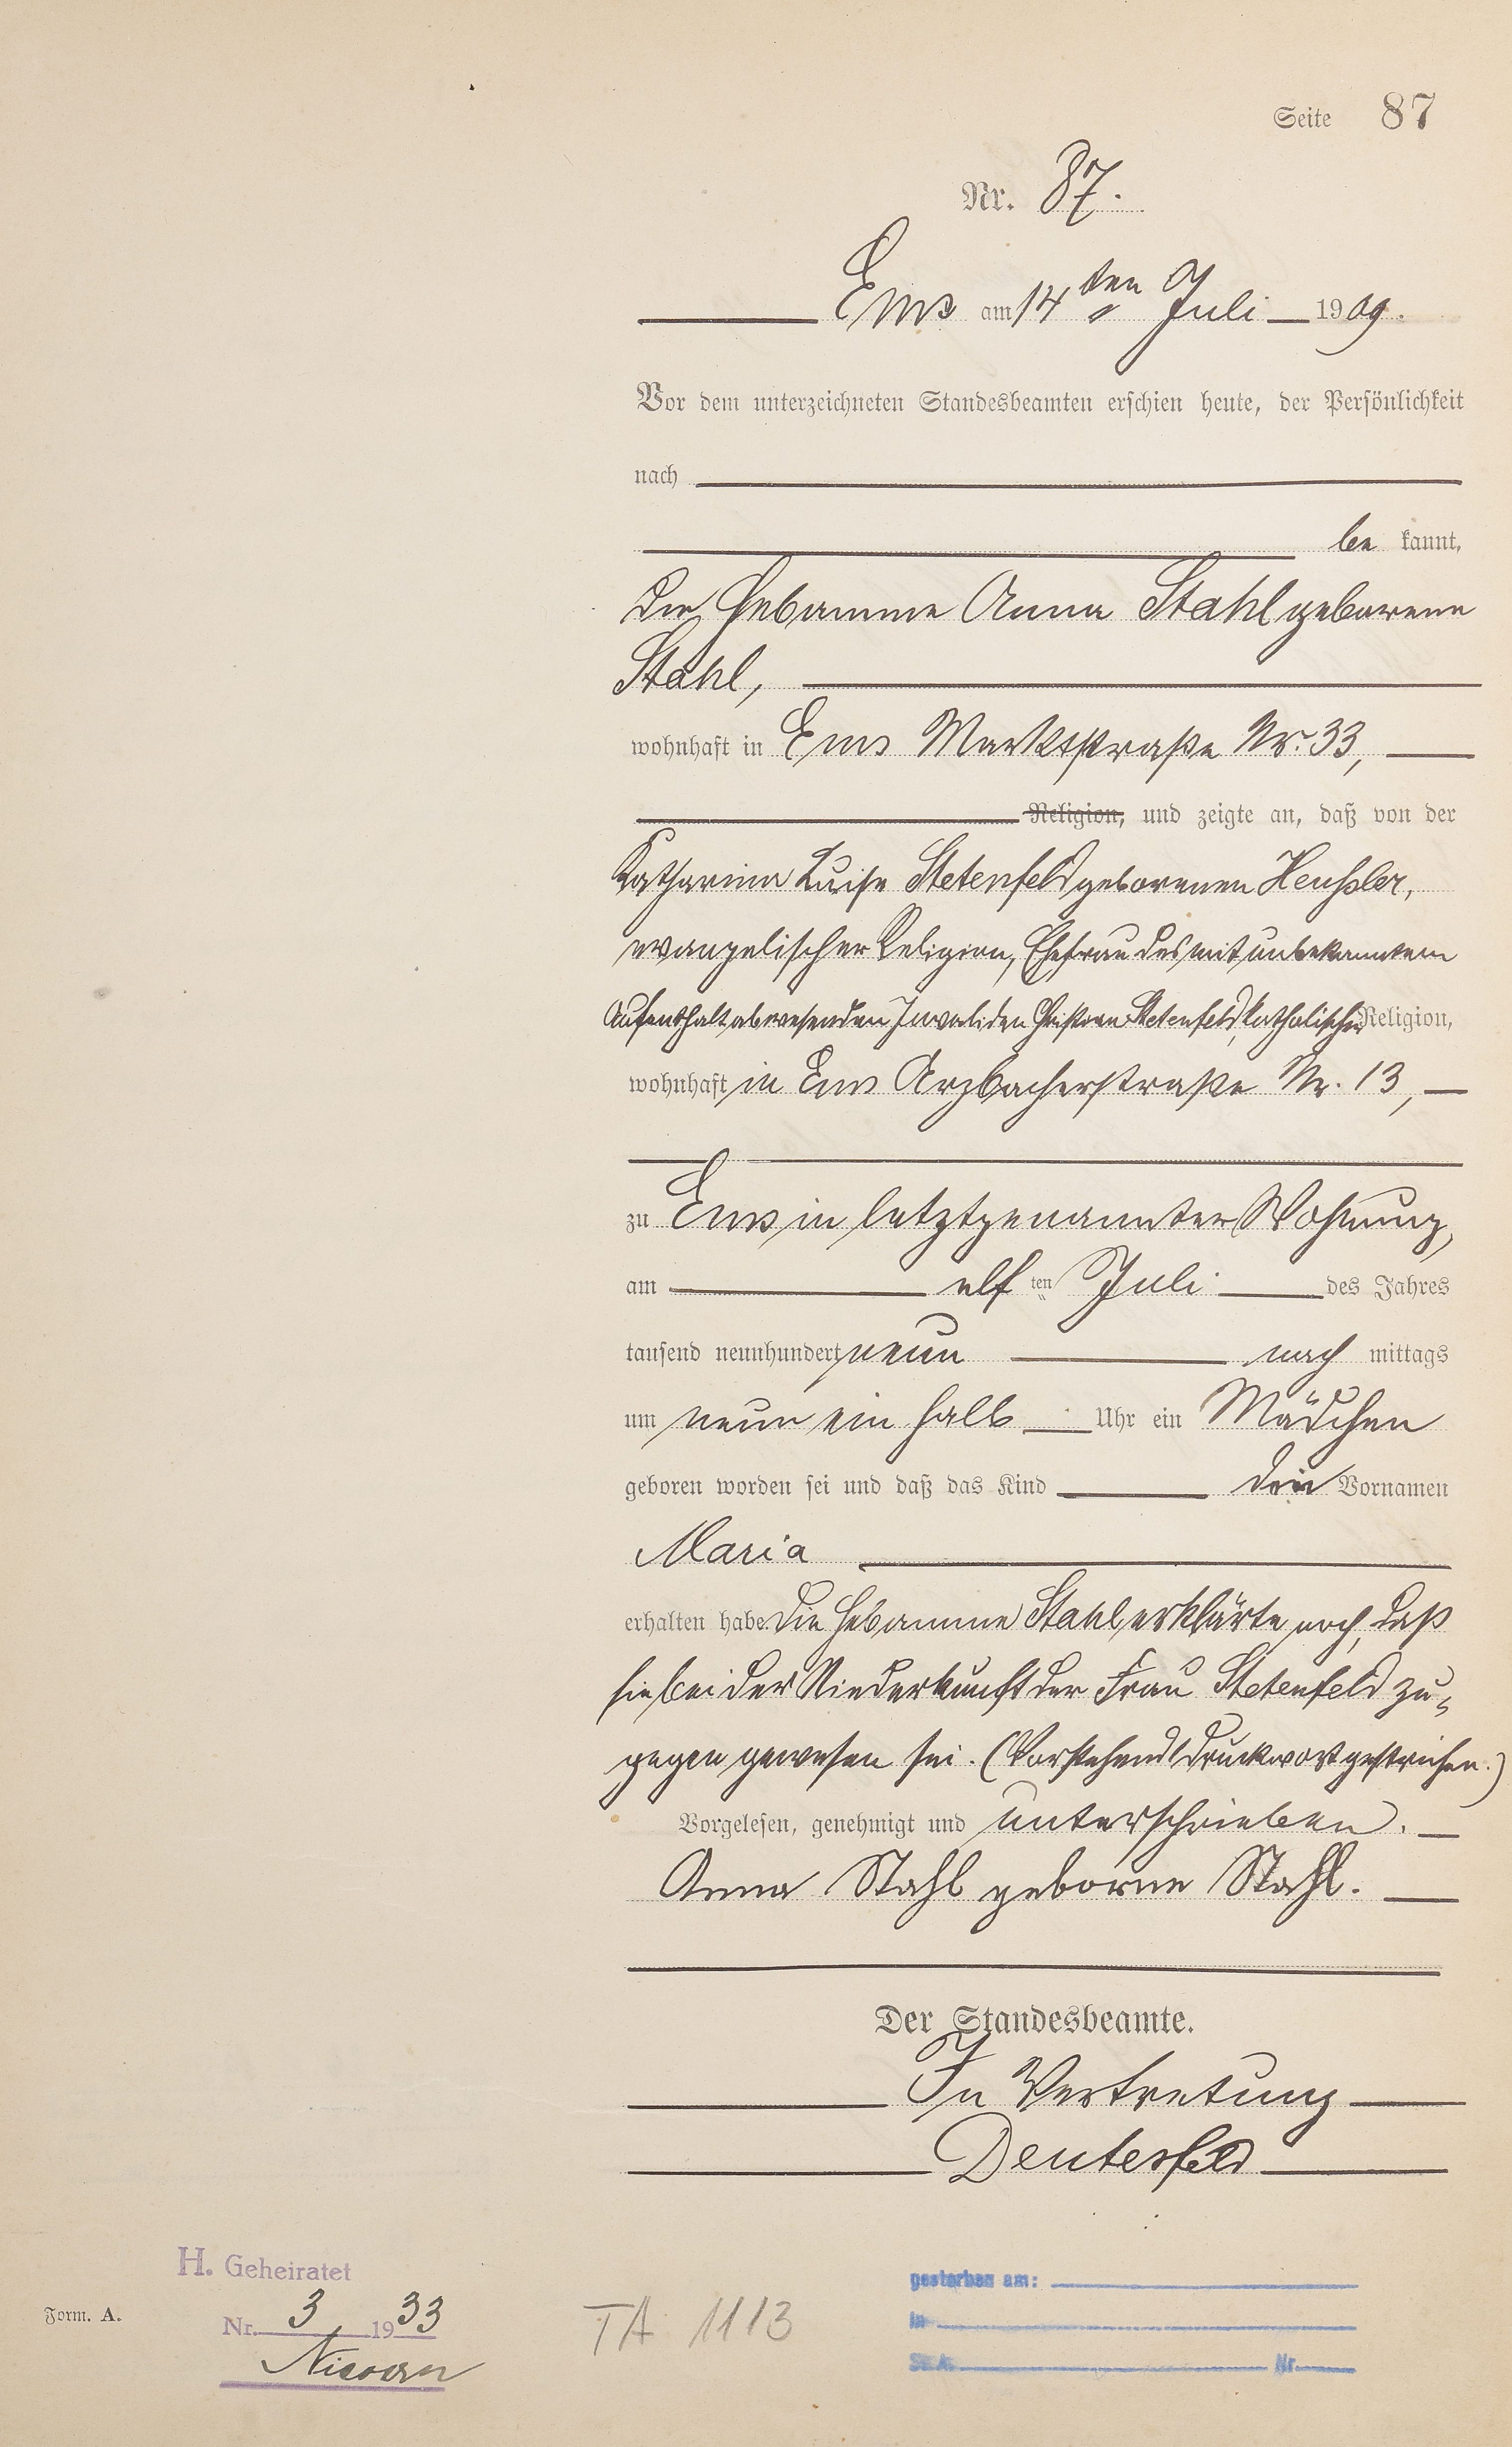 Seite 87
Nr. 87.
Ems am 14ten Juli 1909.
Vor dem unterzeichneten Standesbeamten erschien heute, der Persönlichkeit
nach
be kannt,
die Hebamme Anna Stahl geborene
Stahl,
wohnhaft in Ems Marktstraße Nr. 33,
Religion, und zeigte an, daß von der
Katharina Luise Stetenfeld geborenen Heußler,
evangelischer Religion, Ehefrau des mit unbekanntem
Aufenthalt abwesenden Invaliden Christian Stetenfeld, katholischer Religion,
wohnhaft in Ems Arzbacherstraße Nr. 13,
zu Ems in letztgenannter Wohnung,
am elf ten Juli des Jahres
tausend neunhundert neun nach mittags
um neun ein halb Uhr ein Mädchen
geboren worden sei und daß das Kind den Vornamen
Maria
erhalten habe. Die Hebamme Stahl erklärte noch, daß
sie bei der Niederkunft der Frau Stetenfeld zu-
gegen gewesen sei. (Vorstehend 1 Druckwort gestrichen.)
Vorgelesen, genehmigt und unterschrieben.
Anna Stahl geborne Stahl.
Der Standesbeamte.
In Vertretung
Deutesfeld
H. Geheiratet
Nr. 3 1933
Nievern
Form. A.
TA 1113
gestorben am:
in
St.A. Nr.